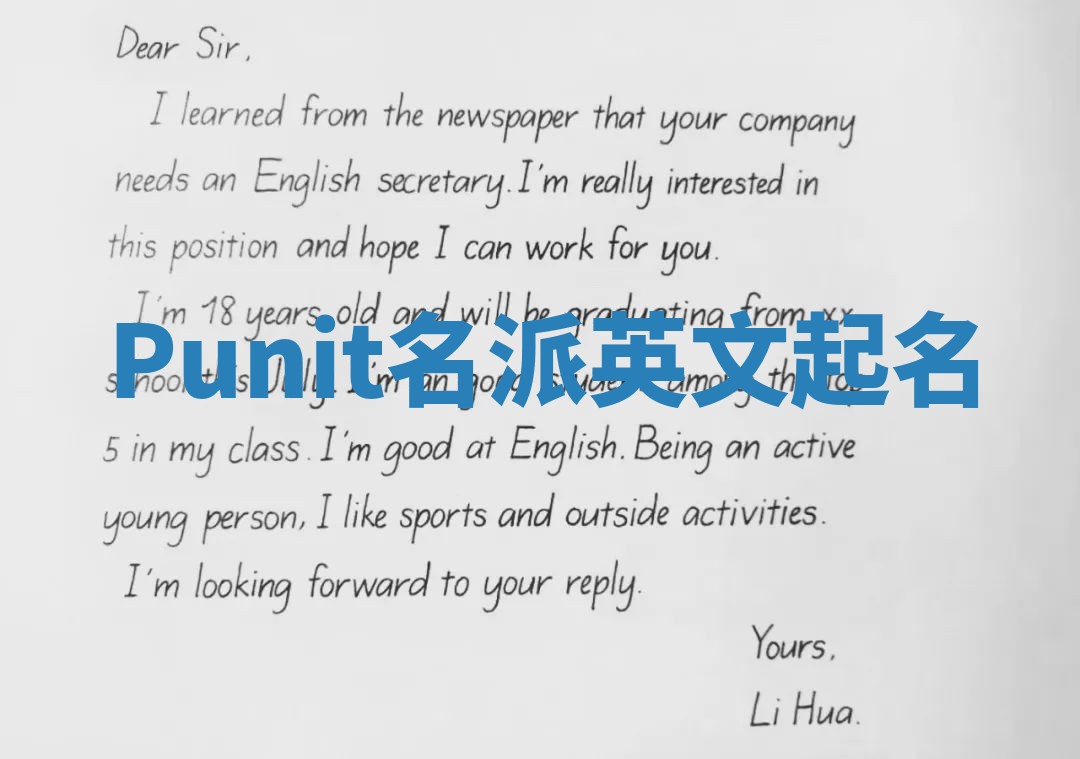 Dear Sir,
I learned from the newspaper that your company
needs an English secretary. I'm really interested in
this position and hope I can work for you.
I'm 18 years old and will be graduating from xx
Punit名派英文起名
school this July. I'm an good student among the top
5 in my class. I'm good at English. Being an active
young person, I like sports and outside activities.
I'm looking forward to your reply.
Yours,
Li Hua.